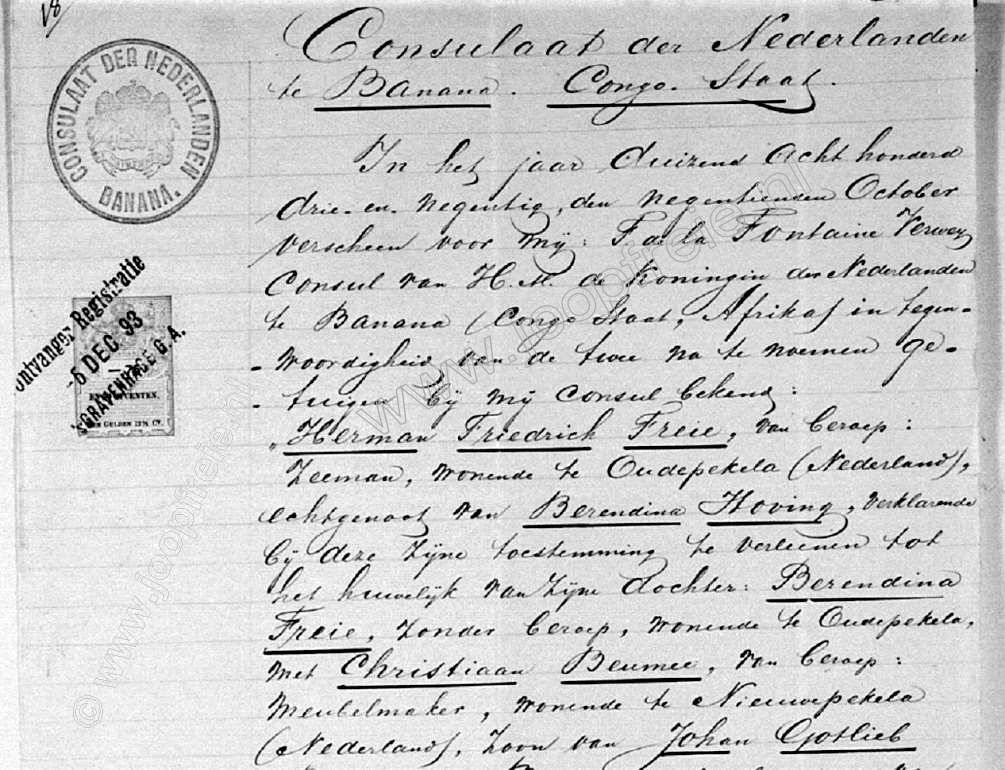 18
CONSULAAT DER NEDERLANDEN
BANANA.
Ontvanger Registratie
-6 DEC 93
'SGRAVENHAGE G. A.
Consulaat der Nederlanden
te Banana. Congo. Staat.
In het jaar duizend acht honderd
drie-en-negentig, den negentienden October
verscheen voor mij: F. de la Fontaine Verwey
Consul van H.M. de Koningin der Nederlanden
te Banana (Congo Staat, Afrika) in tegen-
-woordigheid van de twee na te noemen ge-
-tuigen bij mij Consul bekend:
"Herman Friedrich Freie, van beroep:
Zeeman, wonende te Oudepekela (Nederland),
echtgenoot van Berendina Hoving, verklarende
bij deze zijne toestemming te verleenen tot
het huwelijk van zijne dochter: Berendina
Freie, zonder beroep, wonende te Oudepekela,
met Christiaan Beumee, van beroep:
Meubelmaker, wonende te Nieuwepekela
(Nederland), zoon van Johan Gotlieb
www.joopfreie.nl
© www.joopfreie.nl